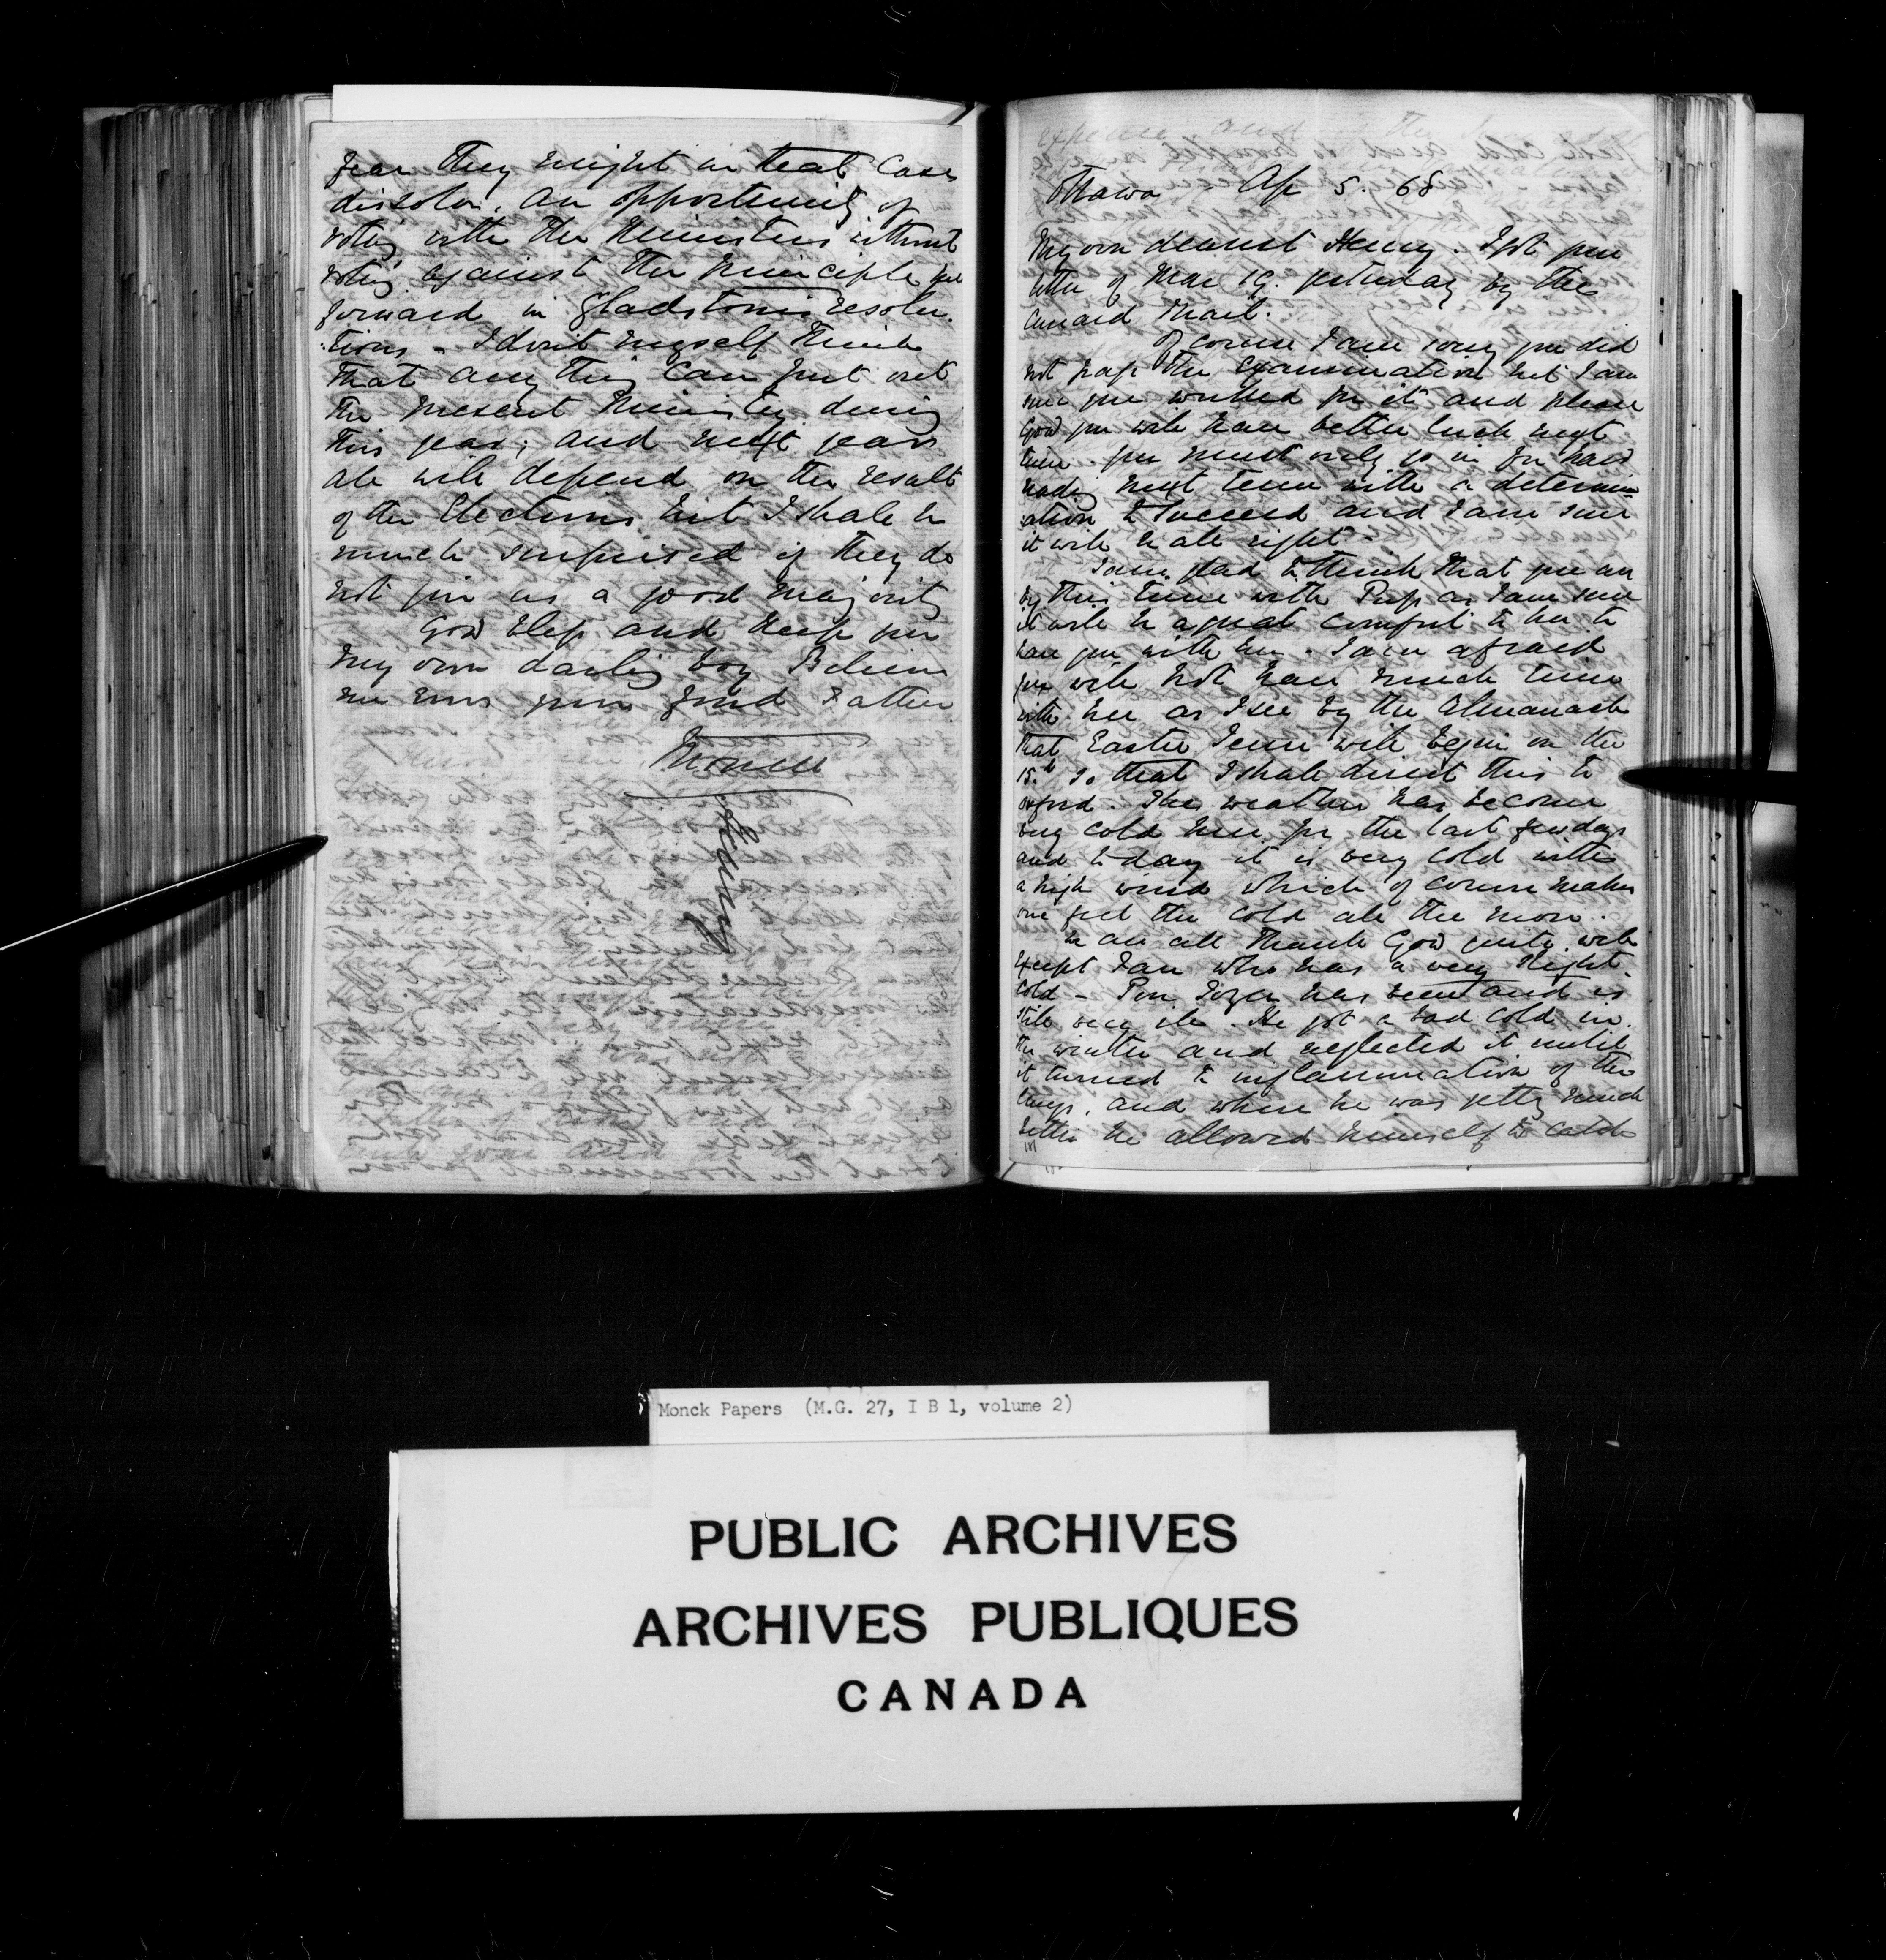 fear they might in that case
dissolve, an opportunity of
voting with the Ministers without
voting against the principle put
forward in Gladstone's resolu-
:tions - I don't myself think
that any thing can put out
the present Ministry during
this year, and next year
all will depend on the result
of the Elections but I shall be
much surprised if they do
not give us a good majority
God bless and keep you
my own darling boy Believe
me ever your fond Father
Monck
Henry
Ottawa. Ap 5. 68
My own dearest Henry. I got your
letter of Mar 19. yesterday by the
Cunard Mail.
Of course I am sorry you did
not pass the Examination but I am
sure you worked for it and please
God you will have better luck next
time. You must only go in for hard
reading next term with a determin
ation to succeed and I am sure
it will be all right.
I am glad to think that you are
by this time with Puss as I am sure
it will be a great comfort to her to
have you with her. I am afraid
you will not have much time
with her as I see by the Almanack
that Easter Term will begin on the
15th so that I shall direct this to
Oxford. The weather has become
very cold here for the last few days
and to day it is very cold with
a high wind which of course makes
one feel the cold all the more.
We are all thank God quite well
except Fan who has a very slight
cold - Poor has been and is
still very ill. He got a bad cold in
the winter and neglected it until
it turned to inflammation of the
lungs, and when he was getting much
better he allowed himself to catch
Monck Papers (M.G. 27, I B 1, volume 2)
PUBLIC ARCHIVES
ARCHIVES PUBLIQUES
CANADA